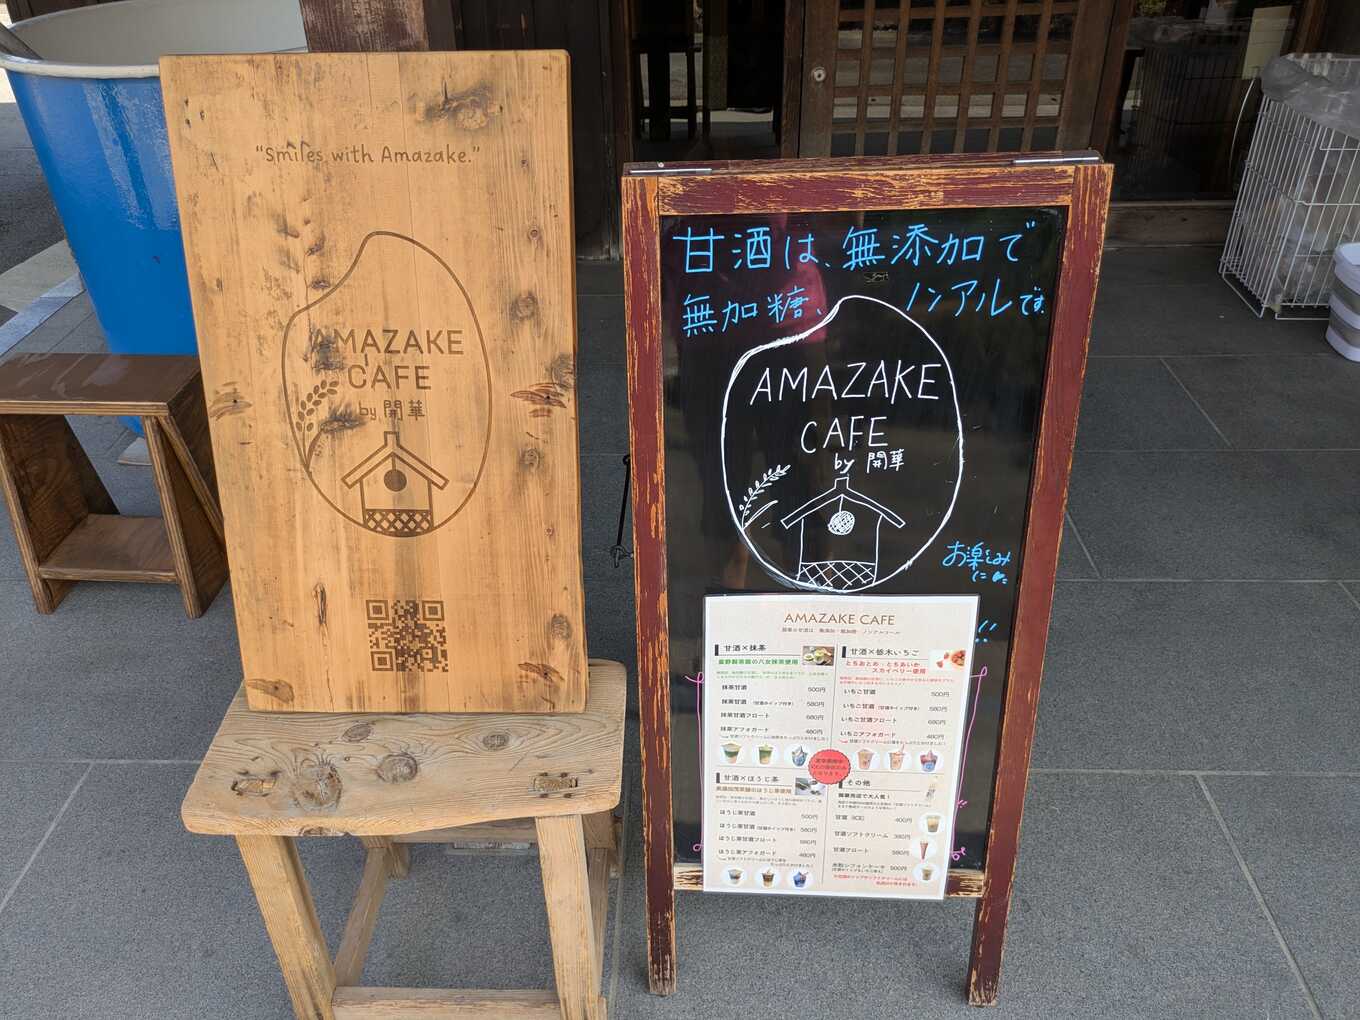 “Smiles with Amazake.”
AMAZAKE
CAFE
by 開華
甘酒は、無添加で
無加糖、ノンアルです。
AMAZAKE
CAFE
by 開華
お楽しみ
に
!!
AMAZAKE CAFE
開華の甘酒は 無添加・無加糖・ノンアルコール
甘酒×抹茶
星野製茶園の八女抹茶使用
抹茶甘酒 500円
抹茶甘酒 (甘酒ホイップ付き) 580円
抹茶甘酒フロート 680円
抹茶アフォガード 480円
甘酒×栃木いちご
とちおとめ・とちあいか
スカイベリー使用
いちご甘酒 500円
いちご甘酒 (甘酒ホイップ付き) 580円
いちご甘酒フロート 680円
いちごアフォガード 480円
甘酒×ほうじ茶
ほうじ茶甘酒 500円
ほうじ茶甘酒 (甘酒ホイップ付き) 580円
ほうじ茶甘酒フロート 580円
ほうじ茶アフォガード 480円
その他
開華売店で大人気！
甘酒 (ICE) 400円
甘酒ソフトクリーム 380円
甘酒フロート 580円
米粉シフォンケーキ 500円